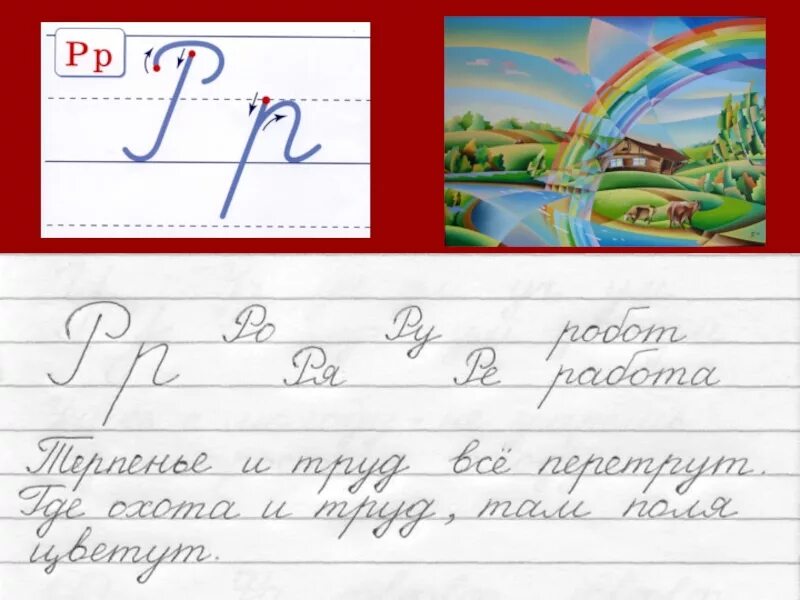 Рр
Рр
Рр Ро Ру робот
Ря Ре работа
Терпенье и труд всё перетрут.
Где охота и труд, там поля
цветут.